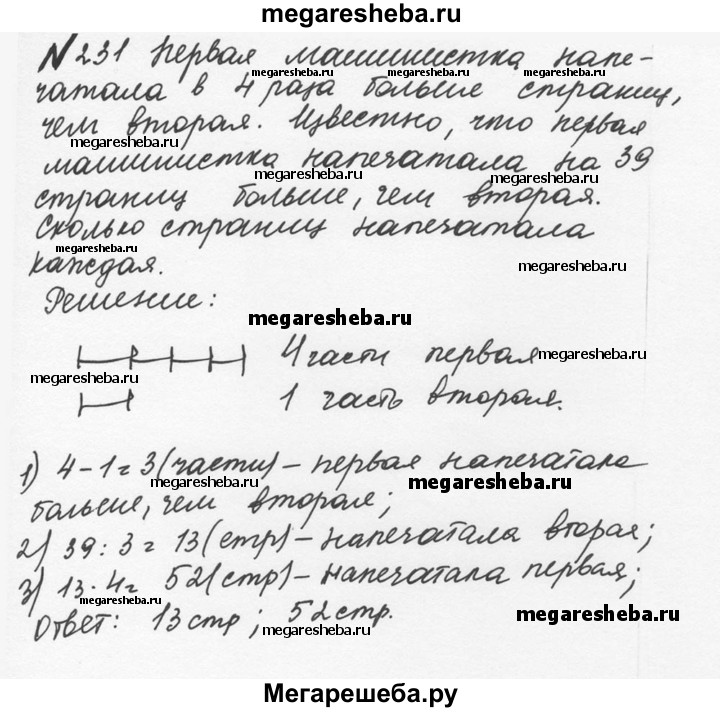 megaresheba.ru
№231 Первая машинистка напе-
megaresheba.ru megaresheba.ru
чатала в 4 раза больше страниц,
megaresheba.ru
чем вторая. Известно, что первая
megaresheba.ru
машинистка напечатала на 39
megaresheba.ru
страниц больше, чем вторая.
Сколько страниц напечатала
megaresheba.ru
каждая.
megaresheba.ru
Решение:
megaresheba.ru
4 части первая
megaresheba.ru
megaresheba.ru
1 часть вторая.
1) 4-1=3(части) - первая напечатала
megaresheba.ru megaresheba.ru
больше, чем вторая;
2) 39:3=13(стр) - напечатала вторая;
3) 13·4=52(стр) - напечатала первая;
megaresheba.ru
Ответ: 13 стр; 52 стр.
megaresheba.ru
megaresheba.ru
Мегарешеба.ру